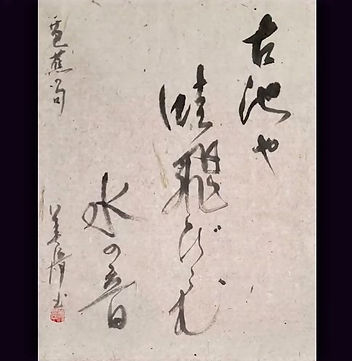 古池や
蛙飛びこむ
水の音
芭蕉句